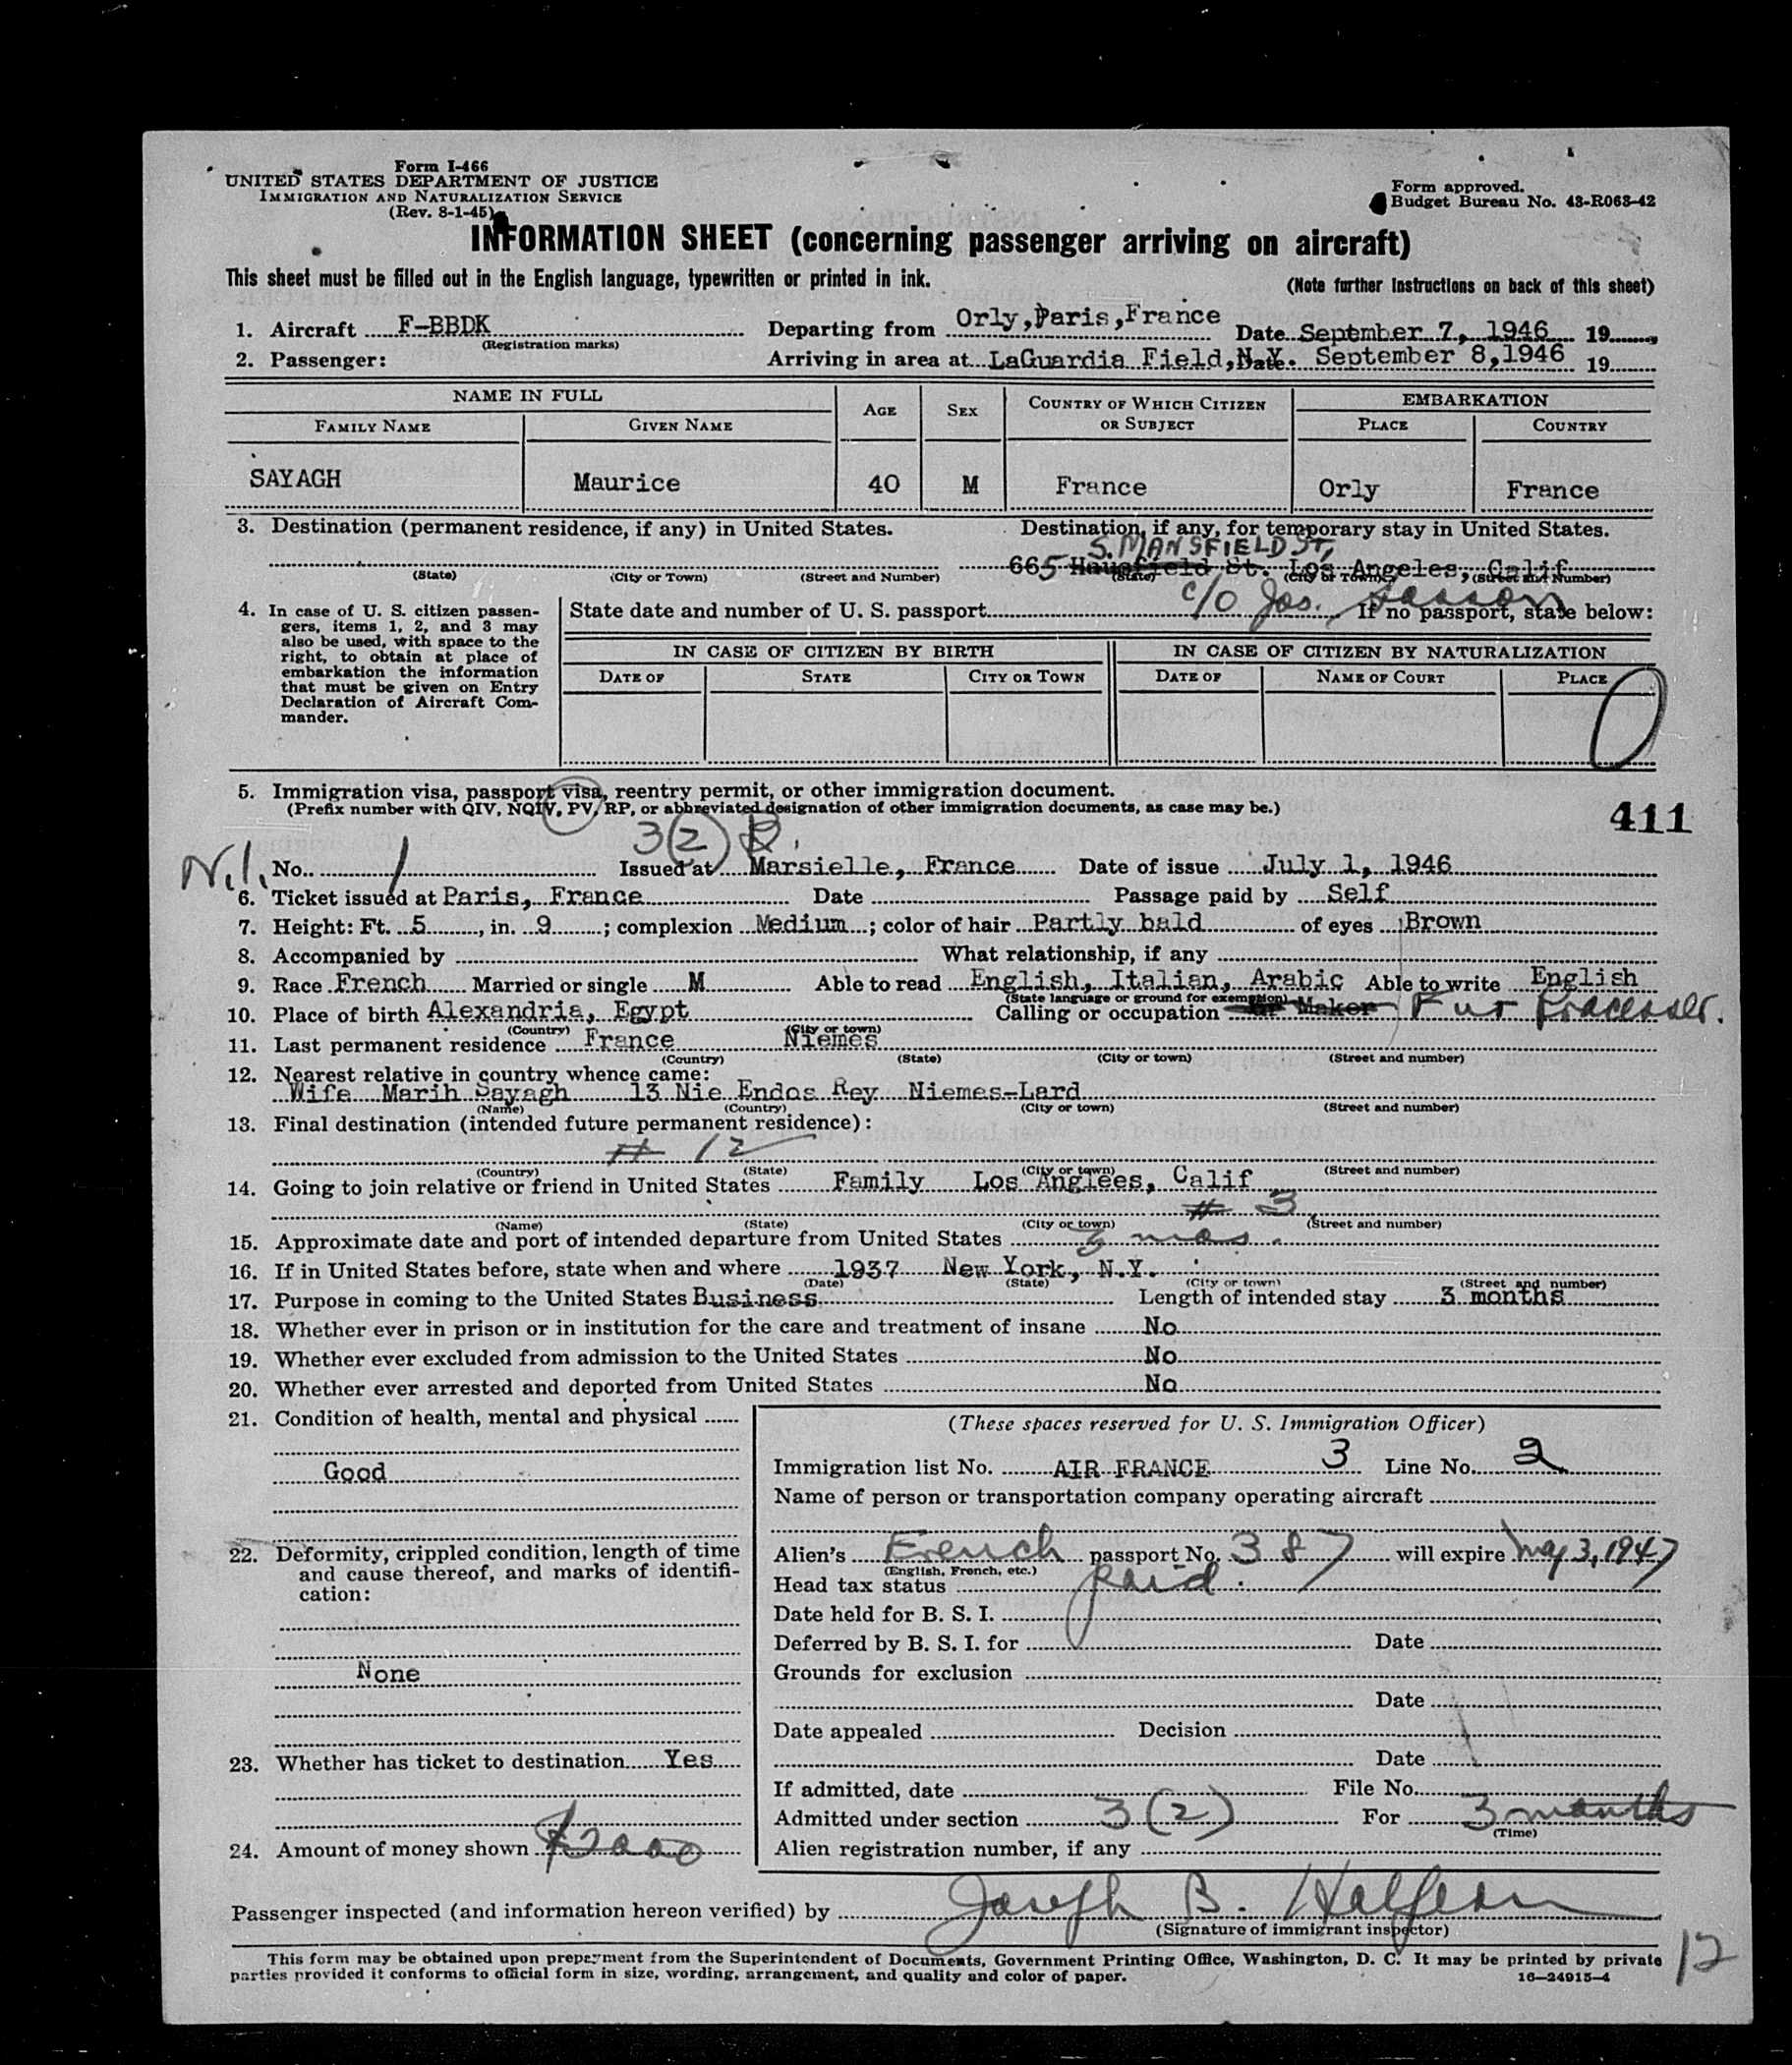 Form I-466
UNITED STATES DEPARTMENT OF JUSTICE
IMMIGRATION AND NATURALIZATION SERVICE
(Rev. 8-1-45)
Form approved.
Budget Bureau No. 43-R063-42
INFORMATION SHEET (concerning passenger arriving on aircraft)
This sheet must be filled out in the English language, typewritten or printed in ink. (Note further instructions on back of this sheet)
1. Aircraft F-BBDK Departing from Orly, Paris, France Date September 7, 1946 19
(Registration marks)
2. Passenger: Arriving in area at LaGuardia Field, N.Y. Date September 8, 1946 19
NAME IN FULL AGE SEX COUNTRY OF WHICH CITIZEN OR SUBJECT EMBARKATION
FAMILY NAME GIVEN NAME PLACE COUNTRY
SAYAGH Maurice 40 M France Orly France
3. Destination (permanent residence, if any) in United States. Destination, if any, for temporary stay in United States.
S. MANSFIELD ST,
665 St. Los Angeles, Calif
(State) (City or Town) (Street and Number) (State) (City or Town) (Street and Number)
c/o Jos.
4. In case of U. S. citizen passengers, items 1, 2, and 3 may also be used, with space to the right, to obtain at place of embarkation the information that must be given on Entry Declaration of Aircraft Commander.
State date and number of U. S. passport If no passport, state below:
IN CASE OF CITIZEN BY BIRTH IN CASE OF CITIZEN BY NATURALIZATION
DATE OF STATE CITY OR TOWN DATE OF NAME OF COURT PLACE
0
5. Immigration visa, passport visa, reentry permit, or other immigration document.
(Prefix number with QIV, NQIV, PV, RP, or abbreviated designation of other immigration documents, as case may be.)
411
3(2)
N.I. No. 1 Issued at Marsielle, France Date of issue July 1, 1946
6. Ticket issued at Paris, France Date Passage paid by Self
7. Height: Ft. 5, in. 9; complexion Medium; color of hair Partly bald of eyes Brown
8. Accompanied by What relationship, if any
9. Race French Married or single M Able to read English, Italian, Arabic Able to write English
(State language or ground for exemption)
10. Place of birth Alexandria, Egypt Calling or occupation Maker Fur Processer.
(Country) (City or town)
11. Last permanent residence France Niemes
(Country) (State) (City or town) (Street and number)
12. Nearest relative in country whence came:
Wife Marih Sayagh 13 Nie Endos Rey Niemes-Lard
(Name) (Country) (City or town) (Street and number)
13. Final destination (intended future permanent residence):
# 12
(Country) (State) (City or town) (Street and number)
14. Going to join relative or friend in United States Family Los Anglees, Calif
# 3
(Name) (State) (City or town) (Street and number)
15. Approximate date and port of intended departure from United States 3 mos.
16. If in United States before, state when and where 1937 New York, N.Y.
(Date) (State) (City or town) (Street and number)
17. Purpose in coming to the United States Business Length of intended stay 3 months
18. Whether ever in prison or in institution for the care and treatment of insane No
19. Whether ever excluded from admission to the United States No
20. Whether ever arrested and deported from United States No
21. Condition of health, mental and physical
Good
22. Deformity, crippled condition, length of time and cause thereof, and marks of identification:
None
23. Whether has ticket to destination Yes
24. Amount of money shown $2000
(These spaces reserved for U. S. Immigration Officer)
Immigration list No. AIR FRANCE 3 Line No. 2
Name of person or transportation company operating aircraft
Alien's French passport No. 387 will expire May 3, 1947
(English, French, etc.)
Head tax status paid.
Date held for B. S. I.
Deferred by B. S. I. for Date
Grounds for exclusion
Date
Date appealed Decision
Date
If admitted, date File No.
Admitted under section 3(2) For 3 months
(Time)
Alien registration number, if any
Passenger inspected (and information hereon verified) by Joseph B. Halfern
(Signature of immigrant inspector)
This form may be obtained upon prepayment from the Superintendent of Documents, Government Printing Office, Washington, D. C. It may be printed by private
parties provided it conforms to official form in size, wording, arrangement, and quality and color of paper. 16—24915-4
12